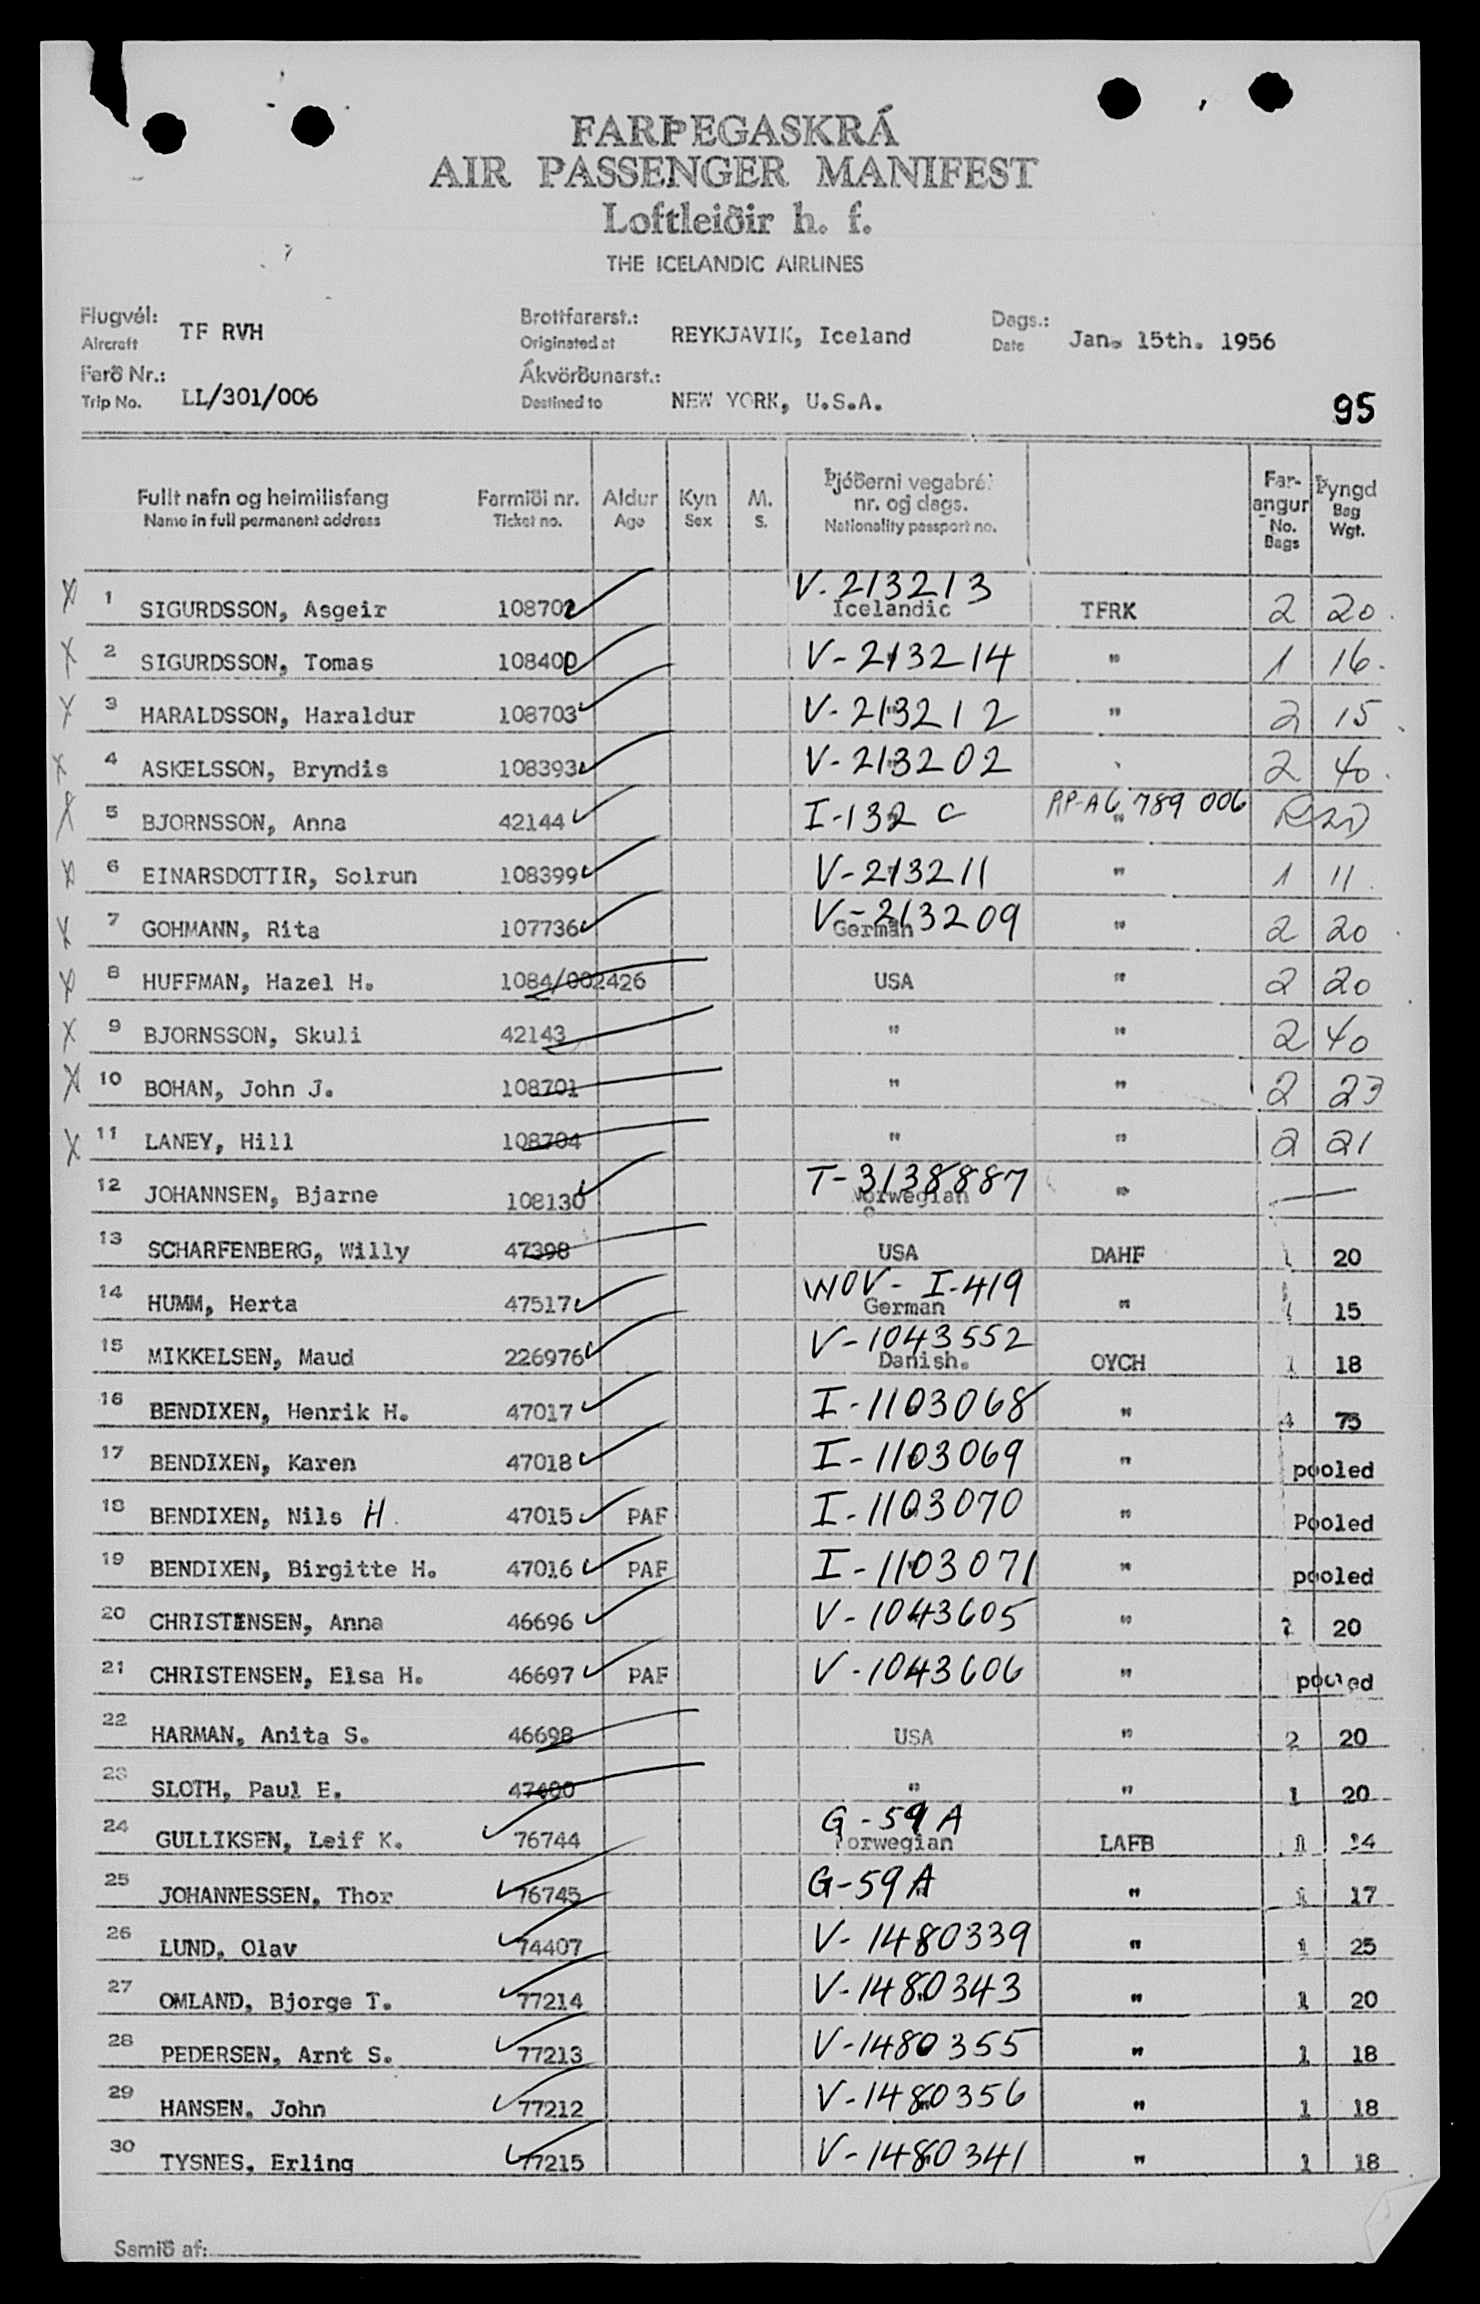 FARÞEGASKRÁ
AIR PASSENGER MANIFEST
Loftleiðir h. f.
THE ICELANDIC AIRLINES
Flugvél: TF RVH Brottfararst.: REYKJAVIK, Iceland Dags.: Jan. 15th. 1956
Aircraft Originated at Date
Ferð Nr.: LL/301/006 Ákvörðunarst.: NEW YORK, U.S.A.
Trip No. Destined to
95
Fullt nafn og heimilisfang Farmiði nr. Aldur Kyn M. Þjóðerni vegabréf nr. og dags. Far-angur Þyngd
Name in full permanent address Ticket no. Age Sex S. Nationality passport no. No. Bags Bag Wgt.
X 1 SIGURDSSON, Asgeir 108702 V-213213 Icelandic TFRK 2 20
X 2 SIGURDSSON, Tomas 108400 V-213214 " 1 16
X 3 HARALDSSON, Haraldur 108703 V-213212 " 2 15
X 4 ASKELSSON, Bryndis 108393 V-213202 " 2 40
X 5 BJORNSSON, Anna 42144 I-132 C PP-A6 789 006 "
X 6 EINARSDOTTIR, Solrun 108399 V-213211 " 1 11
X 7 GOHMANN, Rita 107736 V-213209 German " 2 20
X 8 HUFFMAN, Hazel H. 1084/002426 USA " 2 20
X 9 BJORNSSON, Skuli 42143 " " 2 40
X 10 BOHAN, John J. 108701 " " 2 23
X 11 LANEY, Hill 108704 " " 2 21
12 JOHANNSEN, Bjarne 108130 T-3138887 Norwegian " —
13 SCHARFENBERG, Willy 47398 USA DAHF 1 20
14 HUMM, Herta 47517 WOV- I-419 German " 15
15 MIKKELSEN, Maud 226976 V-1043552 Danish. OYCH 1 18
16 BENDIXEN, Henrik H. 47017 I-1103068 " 4 75
17 BENDIXEN, Karen 47018 I-1103069 " pooled
18 BENDIXEN, Nils H. 47015 PAF I-1103070 " Pooled
19 BENDIXEN, Birgitte H. 47016 PAF I-1103071 " pooled
20 CHRISTENSEN, Anna 46696 V-1043605 " 2 20
21 CHRISTENSEN, Elsa H. 46697 PAF V-1043606 " pooled
22 HARMAN, Anita S. 46698 USA " 2 20
23 SLOTH, Paul E. 47400 " " 1 20
24 GULLIKSEN, Leif K. 76744 G-59A Norwegian LAFB 1 14
25 JOHANNESSEN, Thor 76745 G-59A " 1 17
26 LUND, Olav 74407 V-1480339 " 1 25
27 OMLAND, Bjorge T. 77214 V-1480343 " 1 20
28 PEDERSEN, Arnt S. 77213 V-1480355 " 1 18
29 HANSEN, John 77212 V-1480356 " 1 18
30 TYSNES, Erling 77215 V-1480341 " 1 18
Samið af: